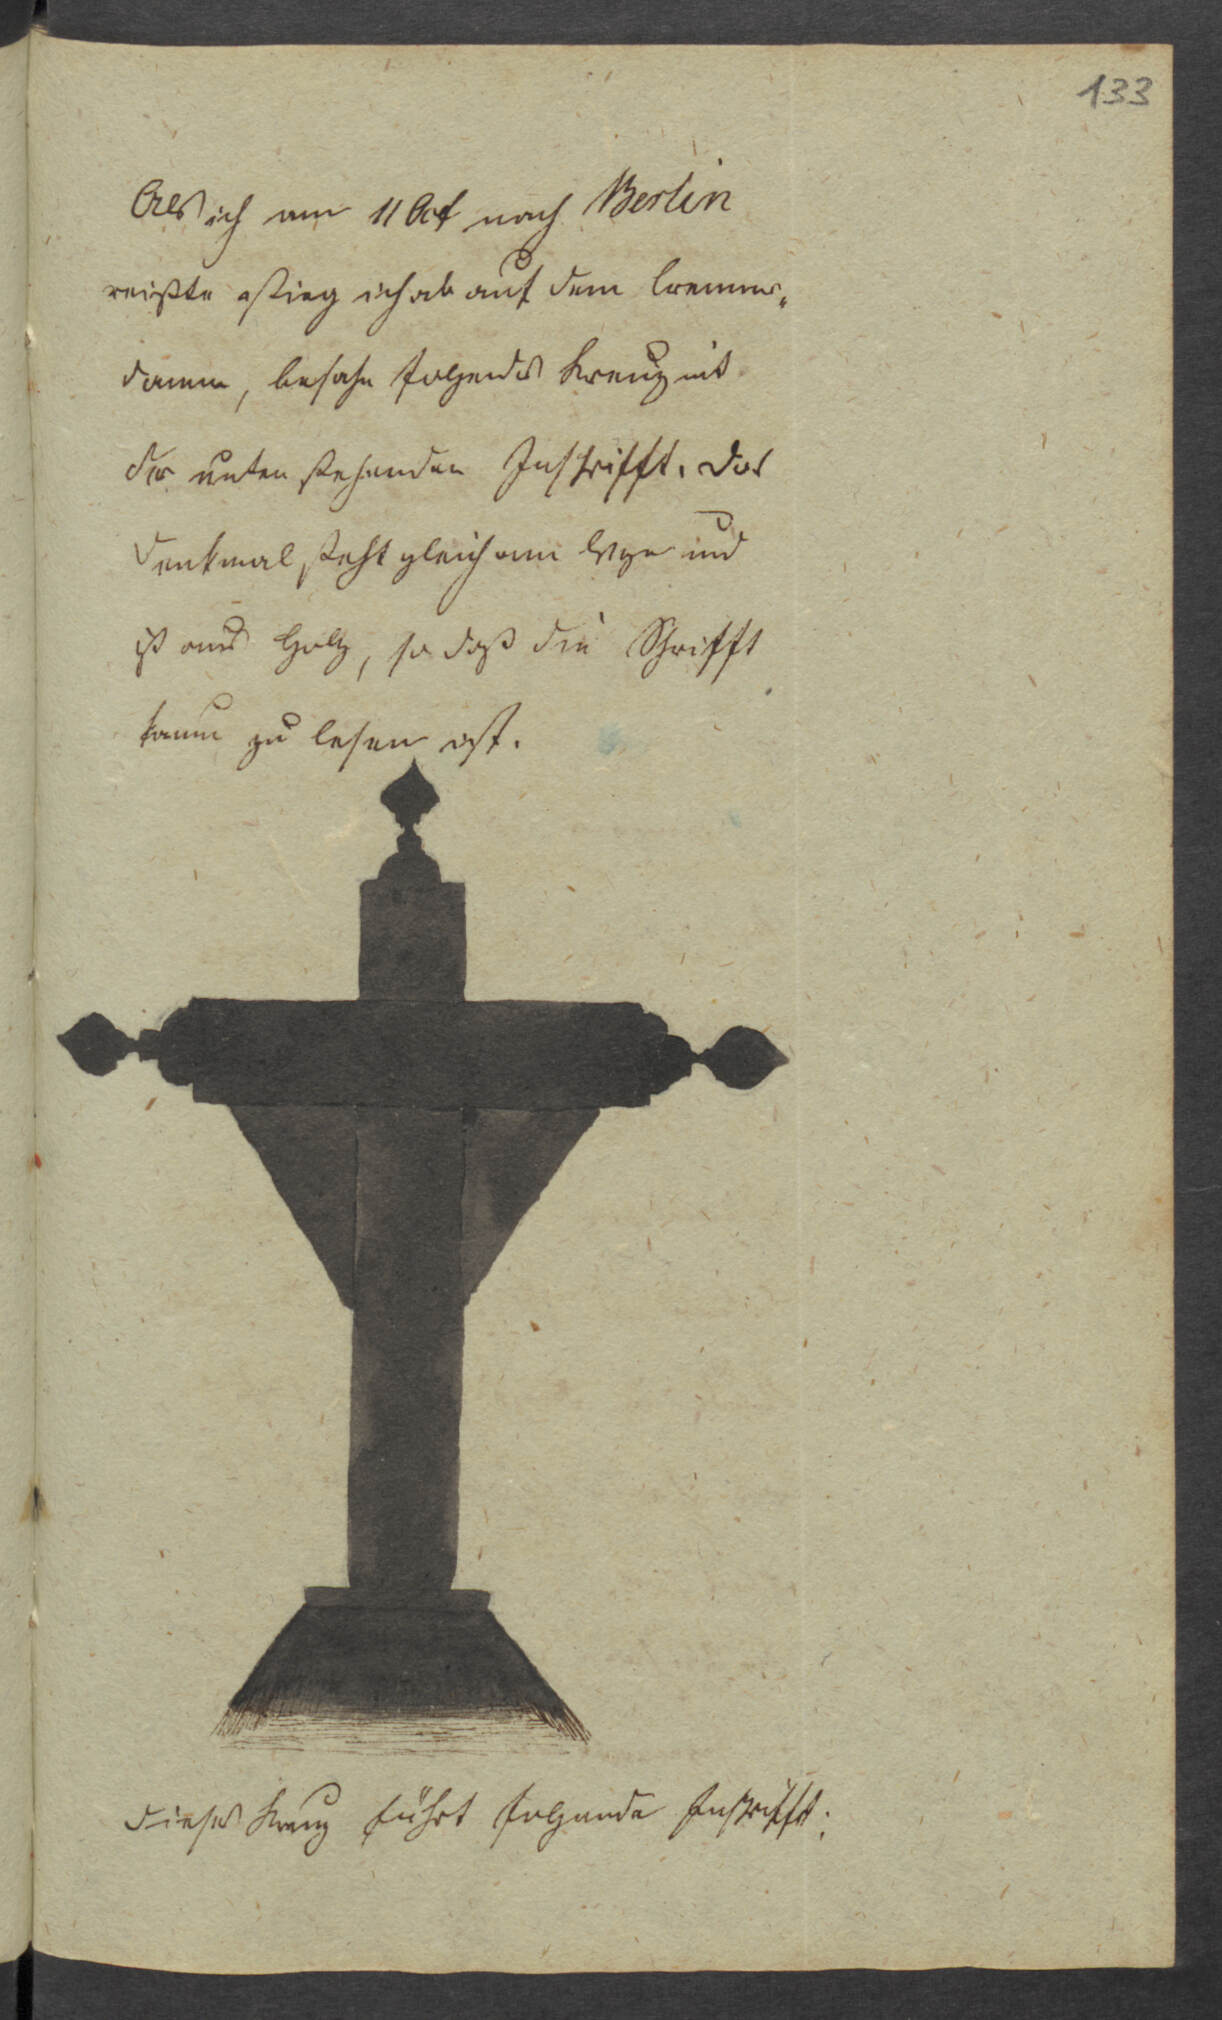 133
Als ich am 11 Oct nach Berlin
reißte stieg ich ab auf dem Cremmer„
damm, besahe folgendes Kreuz mit
der unten stehenden Inschrifft. Das
Denkmal steht gleich am Wege und
ist aus Holz, so daß die Schrifft
kaum zu lesen ist.
Dieses Kreuz führt folgende Inschrifft: